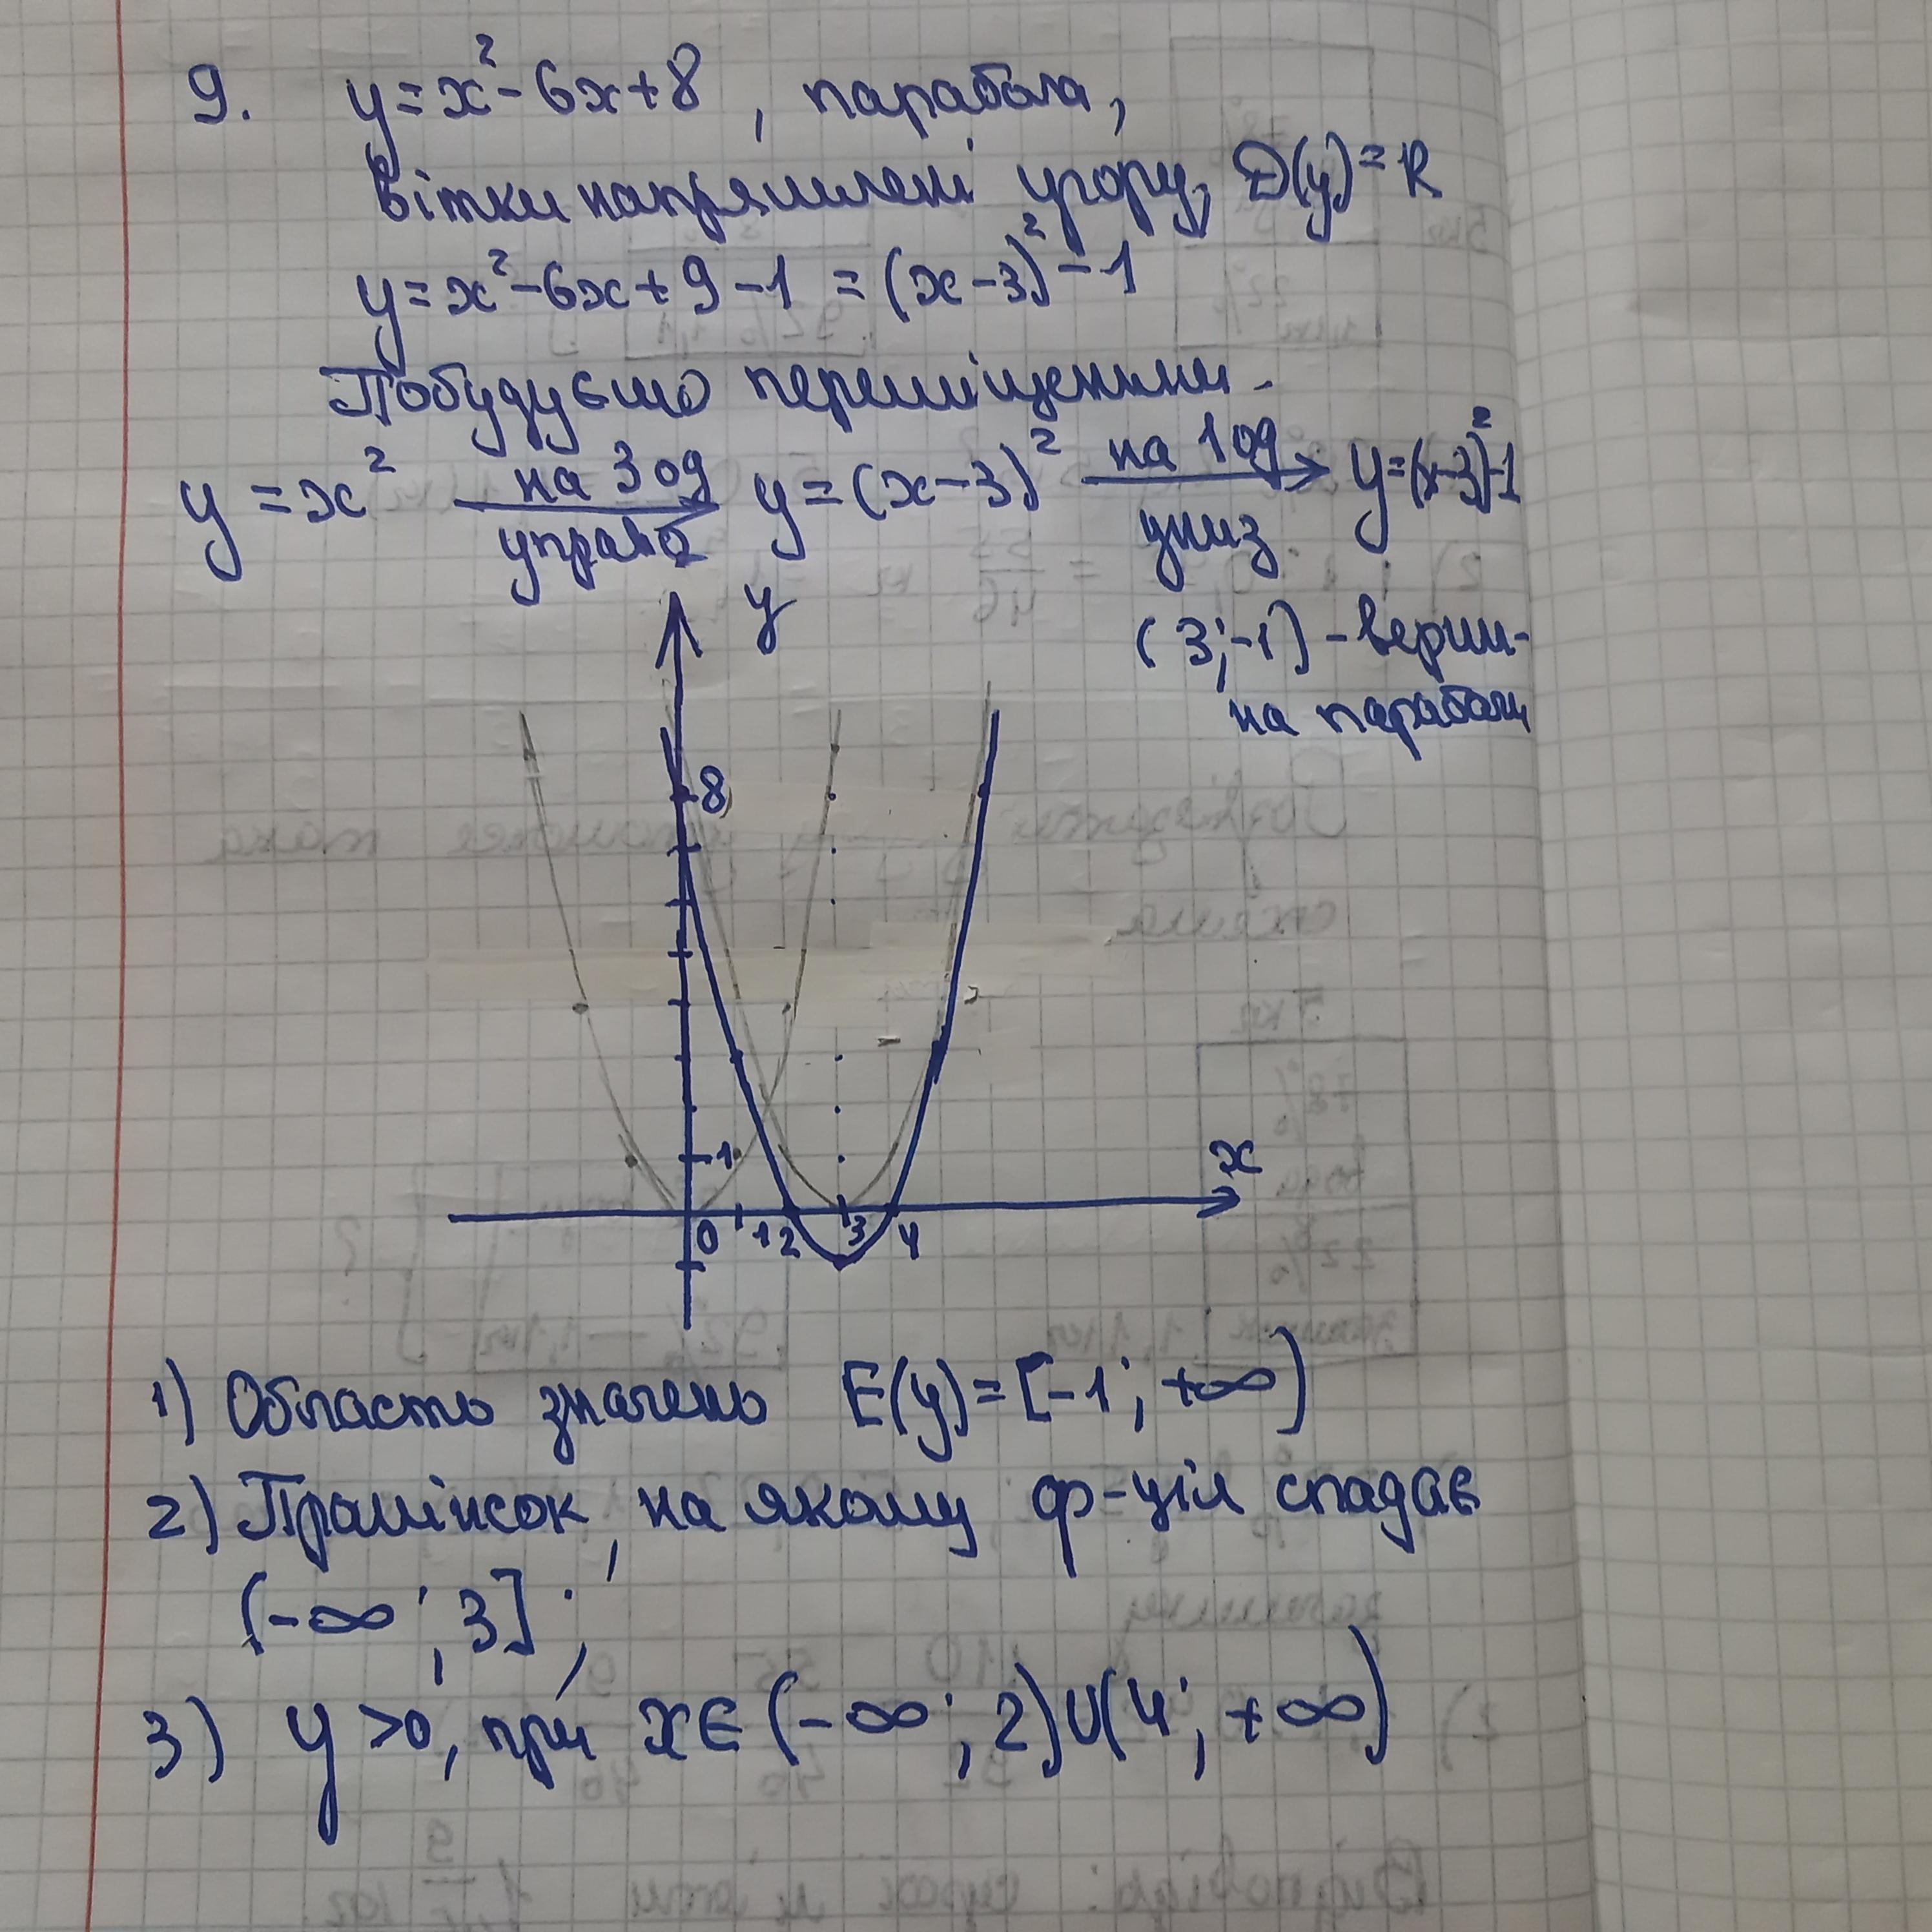 9. y = x² - 6x + 8, парабола,
вітки напрямлені угору, D(y) = R
y = x² - 6x + 9 - 1 = (x - 3)² - 1
Побудуємо переміщеннями.
y = x² на 3 од управо y = (x - 3)² на 1 од униз y = (x - 3)² - 1
(3; -1) - верши-
на параболи
y
8
1
x
0 1 2 3 4
1) Область значень E(y) = [-1; +∞)
2) Проміжок, на якому ф-ція спадає
(-∞; 3];
3) y > 0, при x ∈ (-∞; 2) ∪ (4; +∞)